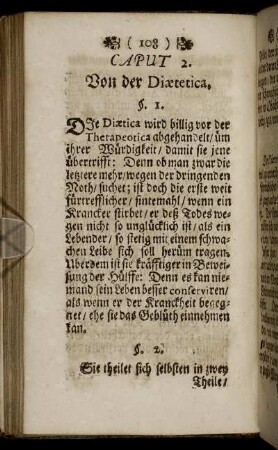 ( 108 )
CAPUT 2.
Von der Diætetica.
§. 1.
DIe Diætica wird billig vor der
Therapeotica abgehandelt / üm
ihrer Würdigkeit / damit sie jene
übertrifft: Denn ob man zwar die
letztere mehr / wegen der dringenden
Noth / suchet; ist doch die erste weit
fürtrefflicher / sintemahl / wenn ein
Krancker stirbet / er deß Todes we-
gen nicht so unglücklich ist / als ein
Lebender / so stetig mit einem schwa-
chen Leibe sich soll herüm tragen.
Uberdem ist sie kräfftiger in Bewei-
sung der Hülffe: Denn es kan nie-
mand sein Leben besser conserviren /
als wenn er der Kranckheit begeg-
net / ehe sie das Geblüth einnehmen
kan.
§. 2.
Sie theilet sich selbsten in zwey
Theile /